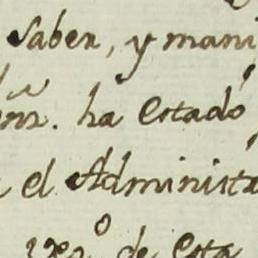 Saber, y mani
ha Estadó
el Administ
de Esta